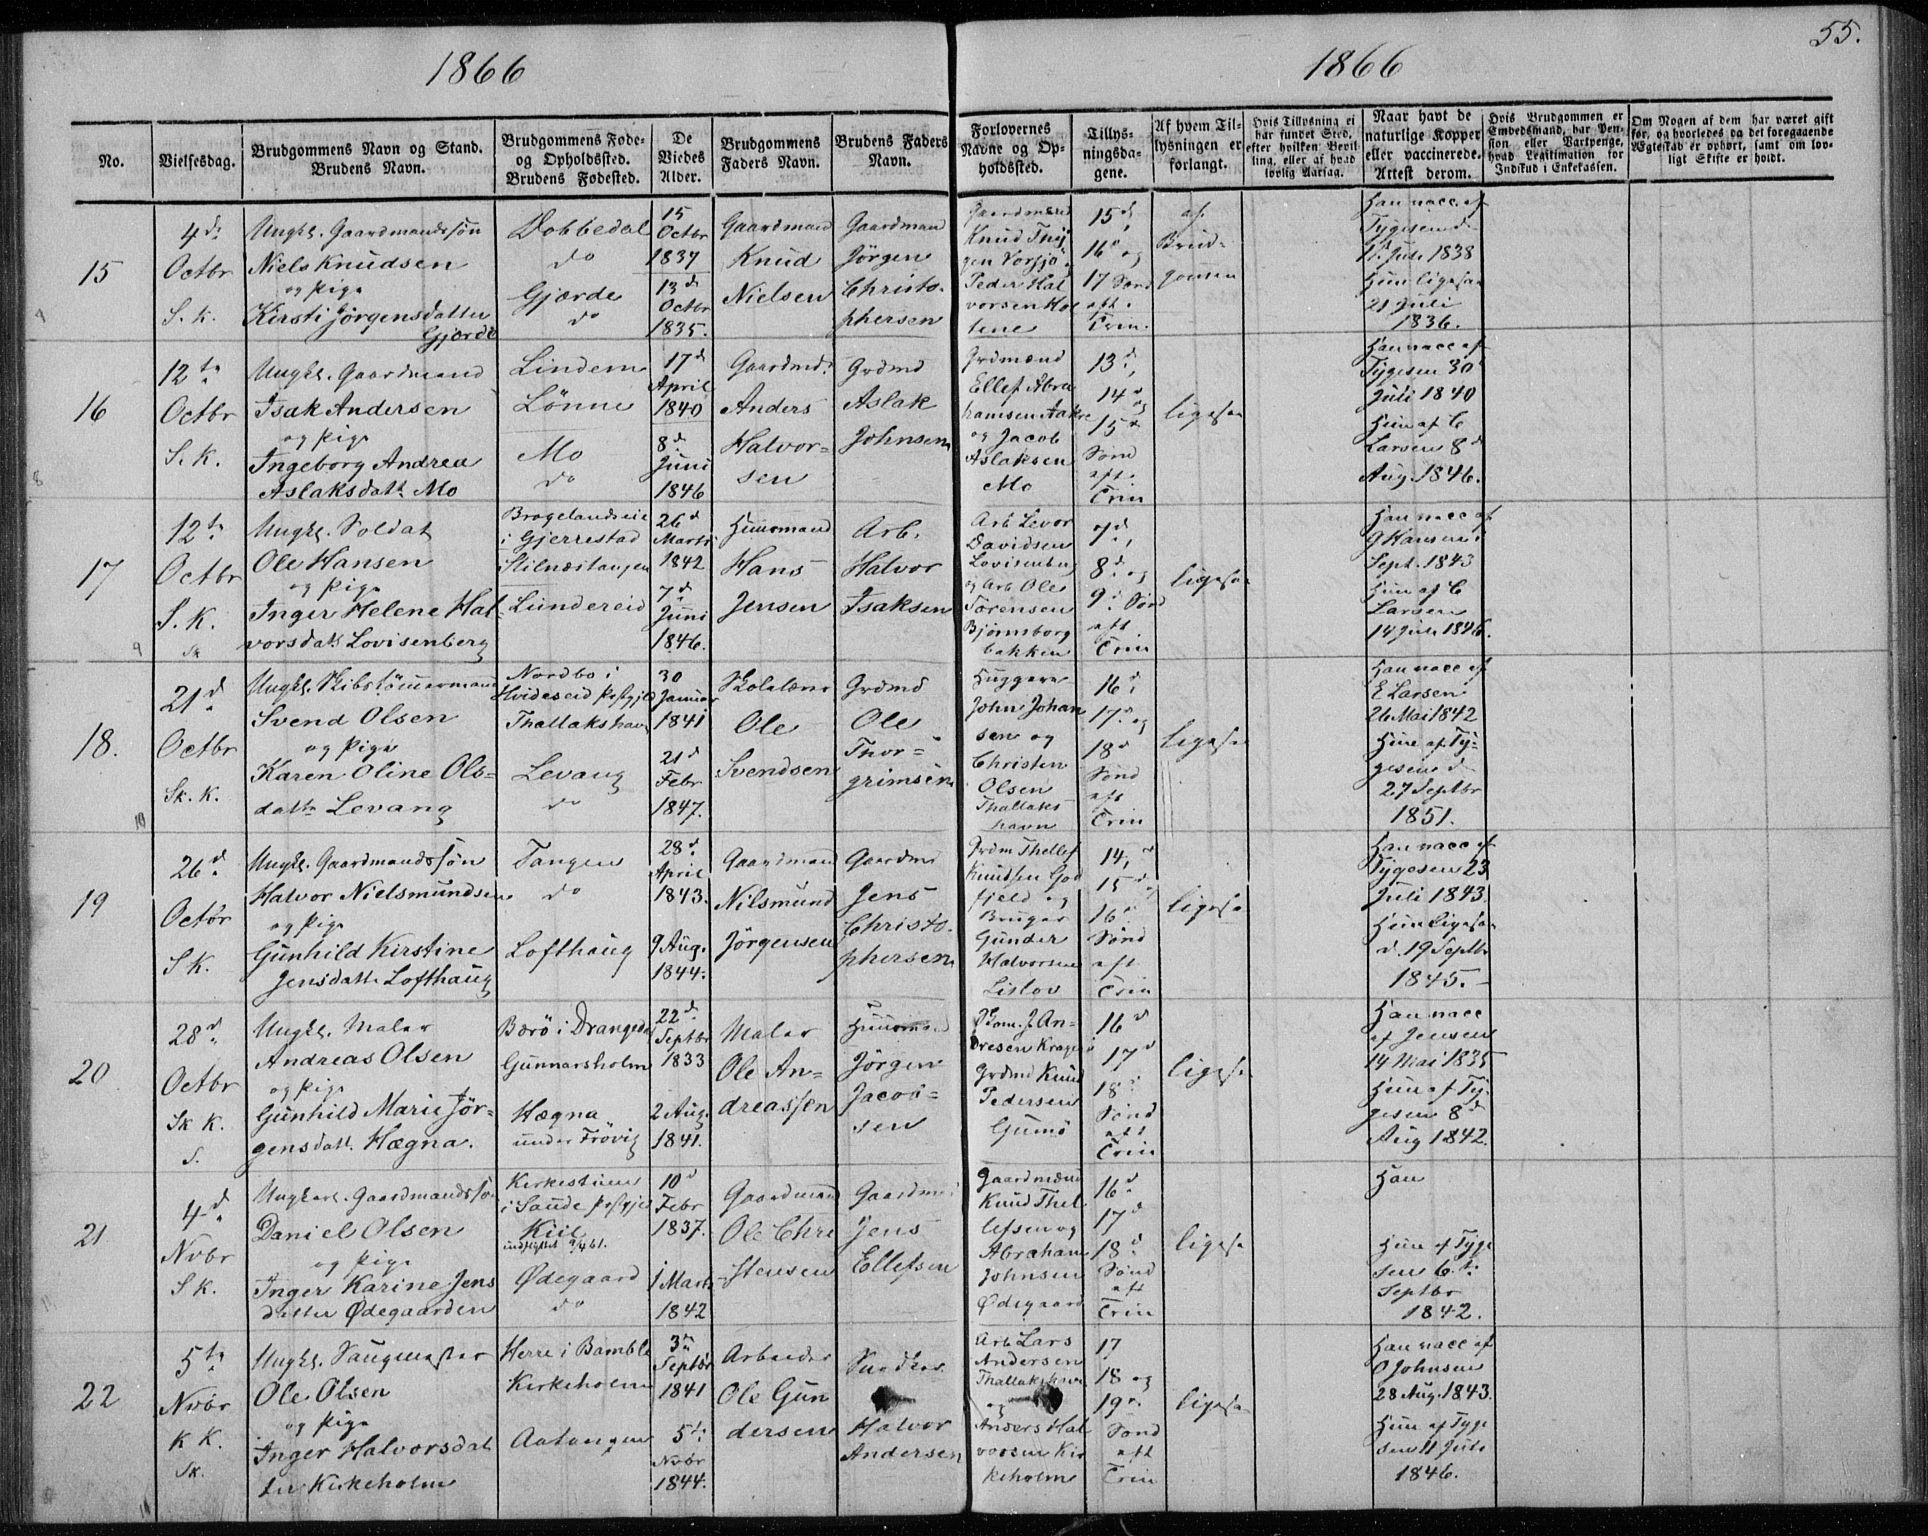 1866
1866
55.
No.
Vielsesdag.
Brudgommens Navn og Stand.
Brudens Navn.
Brudgommens Føde-
og Opholdssted.
Brudens Fødested.
De
Viedes
Alder.
Brudgommens
Faders Navn.
Brudens Faders
Navn.
Forlovernes
Navne og Op-
holdssted.
Tillys-
ningsda-
gene.
Af hvem Til-
lysningen er
forlangt.
Hvis Tillysning ei
har fundet Sted,
efter hvilken Bevil-
ling, eller af hvad
lovlig Aarsag.
Naar havt de
naturlige Kopper
eller vaccinerede.
Attest derom.
Hvis Brudgommen er
Embedsmand, har Pen-
sion eller Vartpenge,
hvad Legitimation for
Indskud i Enkekassen.
Om Nogen af dem har været gift
før, og hvorledes da det foregaaende
Ægteskab er ophørt, samt om lov-
ligt Skifte er holdt.
15
4d
Octbr
S. K.
Ungk. Gaardmandssøn
Niels Knudsen
og Pige
Kirsti Jörgensdatter
Gjærde
Dobbedal
do
Gjærde
do
15
Octbr
1837
13d
Octbr
1835.
Gaardmand
Knud
Nielsen
Gaardmand
Jörgen
Christo-
phersen
Gaardmænd
Knud Thy
gen
Peder Hal
vorsen Hol
tene
15d,
16d og
17 Sønd
aft.
Trin.
af
Brud-
gommen
Han vacc. af
Tygesen d
1d Juli 1838
Hun ligesaa
21 Juli
1836.
16
12te
Octbr
S. K.
Ungk. Gaardmand
Isak Andersen
og Pige
Ingeborg Andrea
Aslaksdatt. Mo
Lindem
Lönne
Mo
do
17d
April
1840
8d
Juni
1846
Gaardmd.
Anders
Halvor-
sen
Grdmd
Aslak
Johnsen
Grdmænd
Ellef Abra
hamsen Aakre
og Jacob
Aslaksen
Mo
13d,
14d og
15d
Sønd
aft.
Trin
ligesaa
Han vacc af
Tygesen 30
Juli 1840
Hun af C
Larsen 8d
Aug. 1846.
17
12te
Octbr
S. K.
Sk
Ungk. Soldat
Ole Hansen
og Pige
Inger Helene Hal-
vorsdatt. Lovisenberg
Brogelandseie
i Gjerrestad
Stilnæstangen
Lundereid
26d
Marts
1842
7d
Juni
1846.
Huusmand
Hans
Jensen
Arb.
Halvor
Isaksen
Arb Levor
Davidsen
Lovisenbg
og Arb Ole
Sörensen
Björnsborg
bakken
7d,
8d. og
9d. Sønd
aft
Trin
ligesaa
Han vacc af
G Hansen i
Sept. 1843
Hun af C
Larsen
14 Juli 1846.
18.
21d
Octbr
Sk. K.
Ungk. Skibstömmermand
Svend Olsen
og Pige
Karen Oline Ols-
datt. Levang
Nordbo i
Hvideseid Pæstgjeld
Thallakshavn
Levang
do
30
Januar
1841
21d
Febr
1847.
Skolelærer
Ole
Svendsen
Grdmd
Ole
Thor-
grimsen
Huggere
John Johan
sen og
Christen
Olsen
Thallaks
havn
16d,
17d og
18d
Sønd
aft
Trin
ligesaa
Han vacc af
E Larsen
26 Mai 1842
Hun af Ty-
gesen d
27 Septbr
1851.
19
26d
Octbr
S K.
Ungk. Gaardmandssøn
Halvor Nielsmundsen
og Pige
Gunhild Kirstine
Jensdatt. Lofthaug
Tangen
do
Lofthaug
28d
April
1843.
9 Aug.
1844.
Gaardmand
Nilsmund
Jörgensen
Gaardmd
Jens
Christo-
phersen
Grdm Thellef
Knudsen God
fjeld og
Bruger
Gunder
Halvorsen
Lislov
14,
15d og
16d
Sønd
aft
Trin
ligesaa
Han vacc af
Tygesen 23
Juli 1843.
Hun ligesaa
d. 19 Septbr
1845.
20
28d
Octbr
Sk K.
S.
Ungk. Maler
Andreas Olsen
og Pige
Gunhild Marie Jör-
gensdatt. Hægna.
Bærö i Drangedal
Gunnarsholm
Hægna
under Frövig
22d
Septbr
1833
2 Aug.
1841.
Maler
Ole An-
dreassen
Huusmand
Jörgen
Jacob-
sen
Skom. J. An-
dresen Kragerö
Grdmd Knud
Pedersen
Gumö
16d
17d
18d
Sønd
aft
Trin
ligesaa
Han vacc
af Jensen
14 Mai 1835
Hun af Ty-
gesen 8d
Aug 1842.
21
4d
Nvbr
S K.
Ungkarl. Gaardmandssø
Daniel Olsen
og Pige
Inger Karine Jens
datter Ødegaarden
i Saude Pæstgjeld
Kiil
indflyttet 9/4 61.
Ødegaard
do
10d
Febr
1837.
1 Marts
1842
Gaardmand
Ole Chri
stensen
Gaardmd
Jens
Ellefsen
Gaardmænd
Knud Thel
lefsen og
Abraham
Johnsen
Ødegaard
16d
17d
18d
Sønd
aft
Trin
ligesaa
Han
Hun af Tyge
sen 6te
Septbr
1842.
22
5te
Nvbr
K K.
Sk.
Ungk. Saugmester
Ole Olsen
og Pige
Inger Halvorsdat
ter Kirkeholm
Herre i Bamble
Kirkeholm
Aatangen
3die
Septbr
1841
5te
Nvbr
1844.
Arbeider
Ole Gun
dersen
Snedker
Halvor
Andersen
Arb Lars
Andersen
Thallakshavn
og
Anders Hal
vorsen Kir
keholm
17
18 og
19d.
Sønd
aft
Trin
ligesaa
Han vacc af
O Johnsen
28 Aug. 1843.
Hun af Tyge
sen 11 Juli
1846.